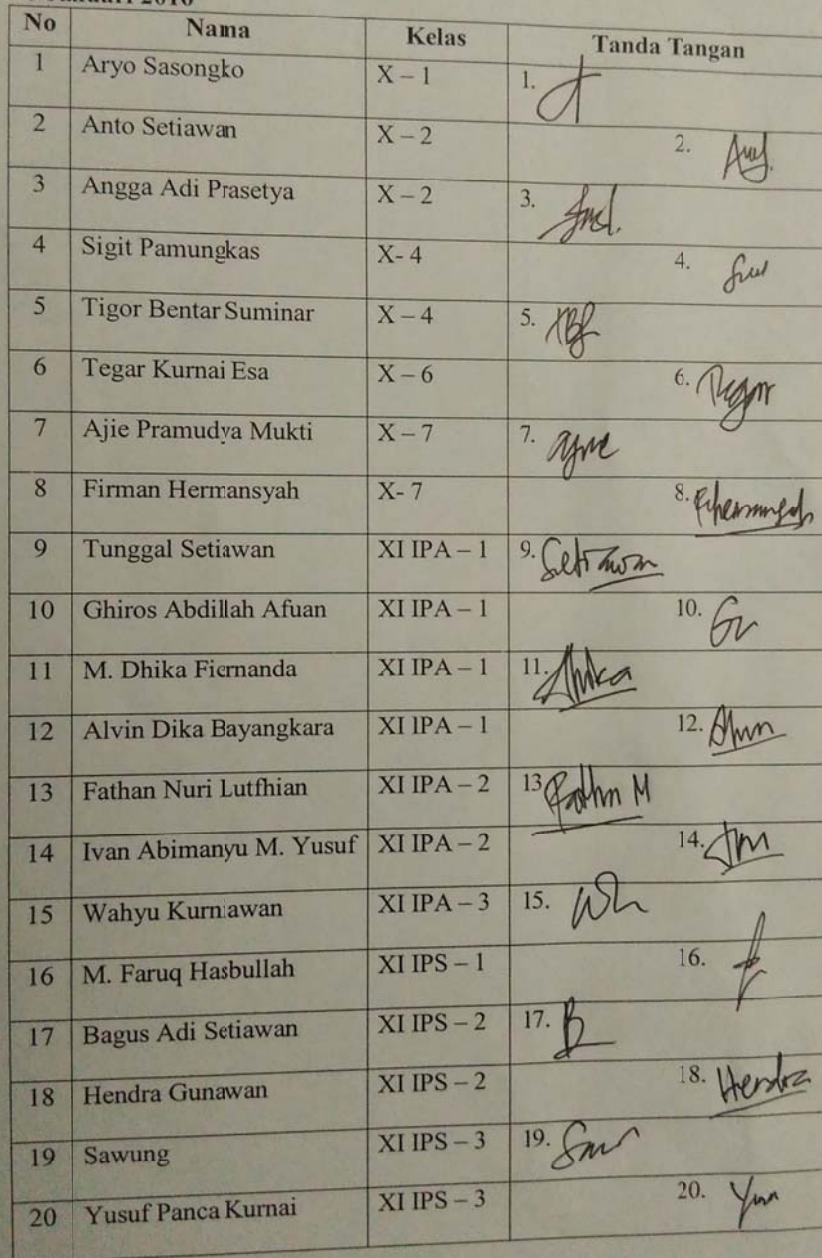 No Nama Kelas Tanda Tangan
1 Aryo Sasongko X – 1 1.
2 Anto Setiawan X – 2 2.
3 Angga Adi Prasetya X – 2 3.
4 Sigit Pamungkas X- 4 4.
5 Tigor Bentar Suminar X – 4 5.
6 Tegar Kurnai Esa X – 6 6.
7 Ajie Pramudya Mukti X – 7 7.
8 Firman Hermansyah X- 7 8.
9 Tunggal Setiawan XI IPA – 1 9. Setiawan
10 Ghiros Abdillah Afuan XI IPA – 1 10.
11 M. Dhika Fiernanda XI IPA – 1 11. Dhika
12 Alvin Dika Bayangkara XI IPA – 1 12.
13 Fathan Nuri Lutfhian XI IPA – 2 13
14 Ivan Abimanyu M. Yusuf XI IPA – 2 14.
15 Wahyu Kurniawan XI IPA – 3 15.
16 M. Faruq Hasbullah XI IPS – 1 16.
17 Bagus Adi Setiawan XI IPS – 2 17.
18 Hendra Gunawan XI IPS – 2 18. Hendra
19 Sawung XI IPS – 3 19.
20 Yusuf Panca Kurnai XI IPS – 3 20.